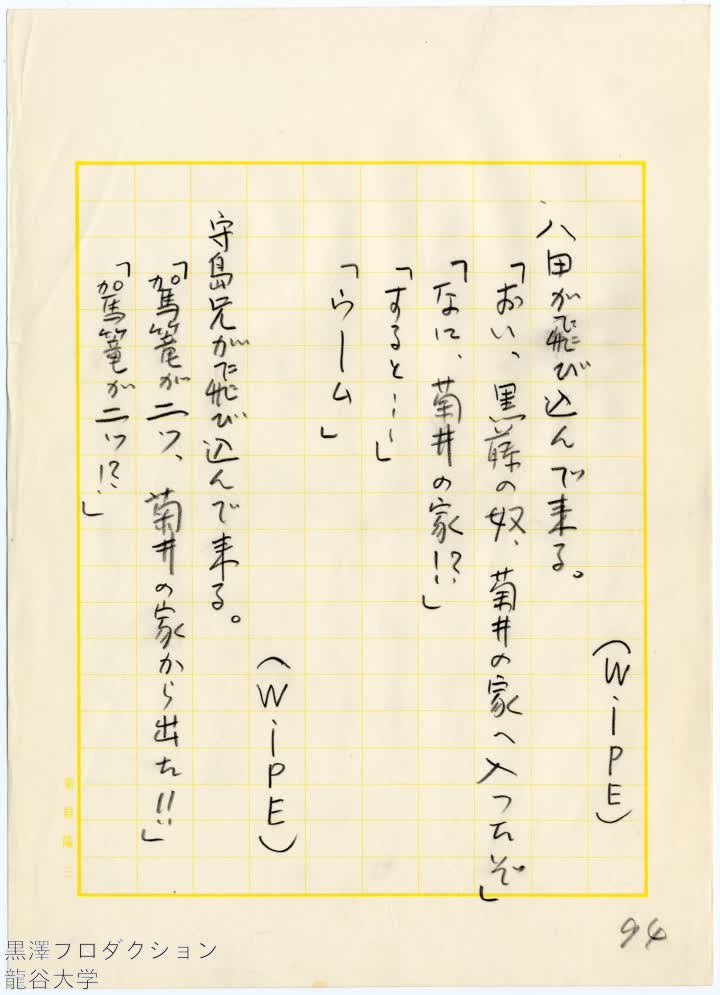 （WIPE）
八田が飛び込んで来る。
「おい、黒藤の奴、菊井の家へ入つたぞ」
「なに、菊井の家!?」
「すると……」
「うーム」
（WIPE）
守島兄が飛び込んで来る。
「駕篭が二ツ、菊井の家から出た!!」
「駕篭が二ツ!?」
94
黒澤プロダクション
龍谷大学